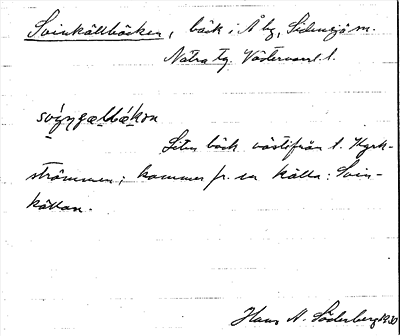 Svinkällbäcken, bäck i Å by, Sidensjö sn.
Nätra tg. Västernorrl. l.
Liten bäck västifrån t. Kyrk-
strömmen; kommer fr. en källa: Svin-
källan.
Hans N. Söderberg 1930